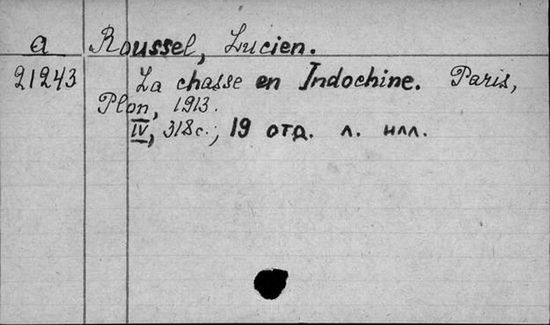 а Roussel, Lucien.
21243 La chasse en Indochine. Paris,
Plon, 1913.
IV, 318с.; 19 отд. л. илл.